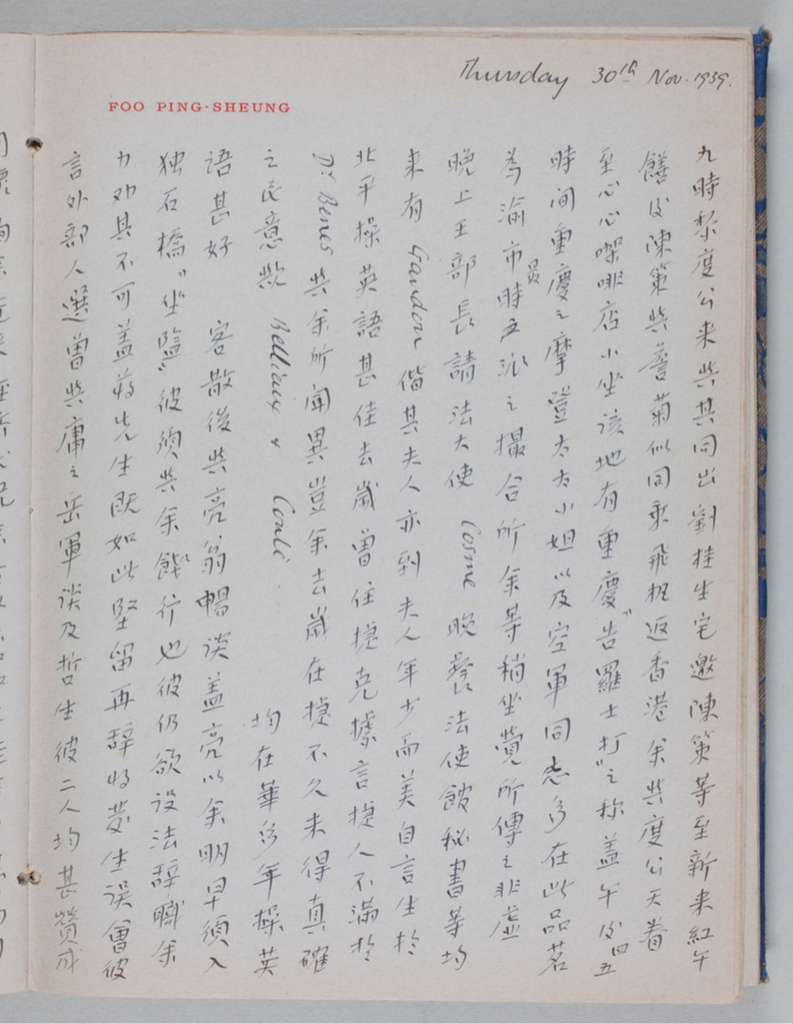 Thursday 30th Nov. 1939.
FOO PING-SHEUNG
九時黎度公来與其同出劉桂生宅邀陳策等至新来紅午
饍後陳策與菊似同乘飛機返香港余與度公天眷
至心心㗎啡店小坐該地有重慶"告羅士打"之称盖午後四五
時间重慶之摩登太太小姐以及空軍同志多在此品茗
為渝市時員五派之撮合所余等稍坐覺所傳之非虚
晚上王部長請法大使 Cosme 晚餐法使館秘書等均
来有 偕其夫人亦到夫人年少而美自言生於
北平操英語甚佳去歲曾住捷克據言捷人不滿於
Dr Benes 與余所聞異豈余去歲在捷不久未得真確
之民意歟 & 均在華多年操英
語甚好 客散後與亮翁暢谈盖亮以余明早須入
独石橋"坐監"彼須與余餞行也彼仍欲设法辞職余
力劝其不可盖蒋先生既如此堅留再辞将发生误會彼
言外部人選曾與庸之岳軍谈及哲生彼二人均甚贊成